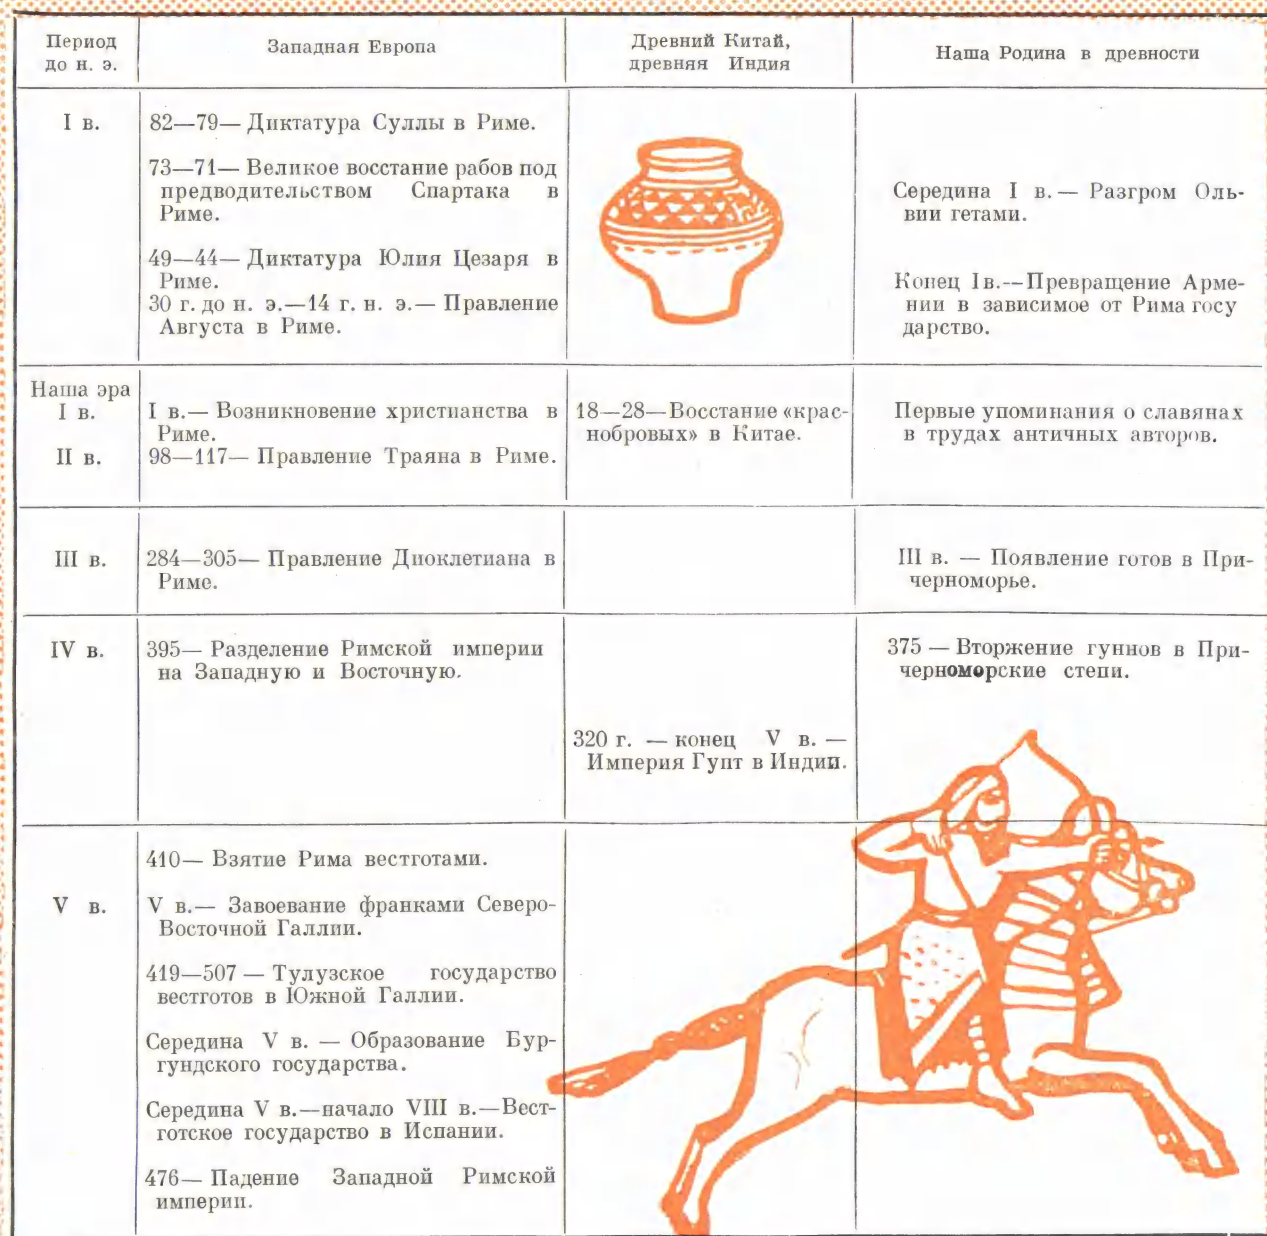 Период
до н. э.
Западная Европа
Древний Китай,
древняя Индия
Наша Родина в древности
I в.
82—79— Диктатура Суллы в Риме.
73—71— Великое восстание рабов под
предводительством Спартака в
Риме.
49—44— Диктатура Юлия Цезаря в
Риме.
30 г. до н. э.—14 г. н. э.— Правление
Августа в Риме.
Середина I в. — Разгром Оль-
вии гетами.
Конец Iв.—Превращение Арме-
нии в зависимое от Рима госу
дарство.
Наша эра
I в.
I в.— Возникновение христианства в
Риме.
18—28—Восстание «крас-
нобровых» в Китае.
Первые упоминания о славянах
в трудах античных авторов.
II в.
98—117— Правление Траяна в Риме.
III в.
284—305— Правление Диоклетиана в
Риме.
III в. — Появление готов в При-
черноморье.
IV в.
395— Разделение Римской империи
на Западную и Восточную.
320 г. — конец V в. —
Империя Гупт в Индии.
375 — Вторжение гуннов в При-
черноморские степи.
V в.
410— Взятие Рима вестготами.
V в.— Завоевание франками Северо-
Восточной Галлии.
419—507 — Тулузское государство
вестготов в Южной Галлии.
Середина V в. — Образование Бур-
гундского государства.
Середина V в.—начало VIII в.—Вест-
готское государство в Испании.
476— Падение Западной Римской
империи.